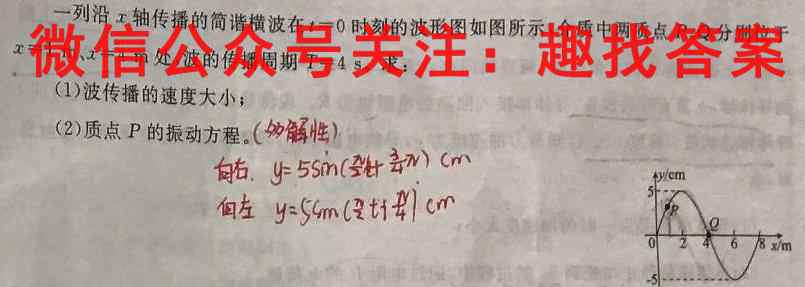 一列沿 x 轴传播的简谐横波在 t=0 时刻的波形图如图所示,介质中两质点
微信公众号关注:趣找答案
处,波的传播周期 T=4 s,求:
(1)波传播的速度大小;
(2)质点 P 的振动方程。(多解性)
向右. y=5sin(π/2t+3/4π) cm
向左 y=5sin(π/2t+π/4) cm
y/cm
5
P
Q
0 2 4 6 8 x/m
-5